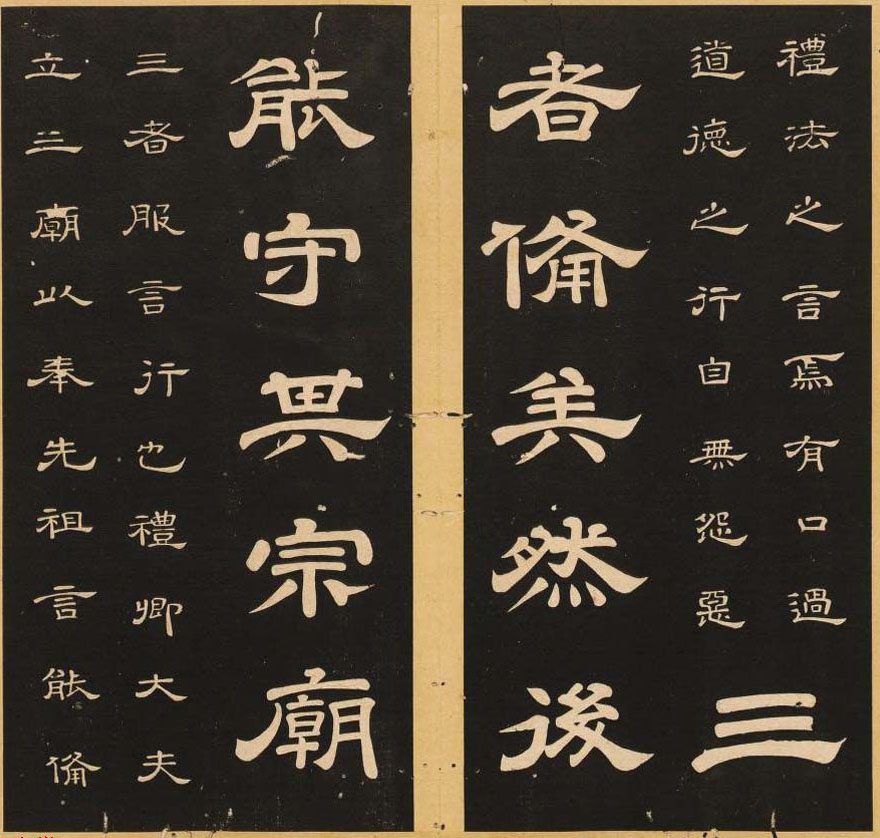 禮法之言焉有口過
道德之行自無怨惡
三
者備美然後
能守其宗廟
三者服言行也禮卿大夫
立三廟以奉先祖言能備